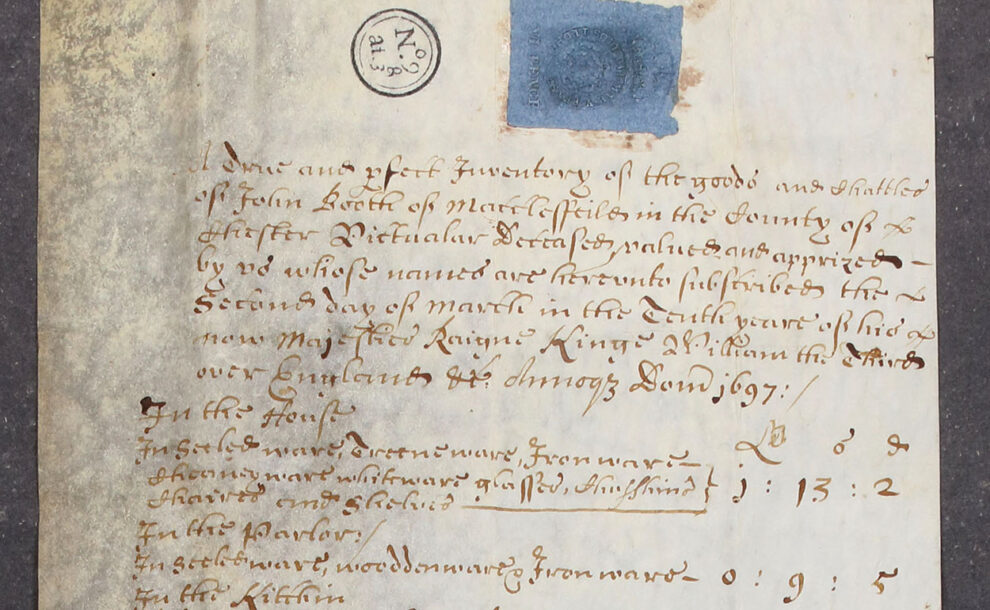 No. 8
at 3
A True and pfect Inventory of the goods and Chattles
of John Booth of Macclesfeild in the County of
Chester Victualar Deceased, valued and apprized
by us whose names are hereunto subscribed the
Second day of March in the Tenth yeare of his
now Majesties Raigne Kinge William the Third
over England &c: Annoqz Dom 1697:/
In the House
In Seeled ware, Treene ware, Iron ware
Cheaney ware whitware glasses, Chaires and Shelves
L s d
1 : 13 : 2
In the Parlor:/
In Seeled ware, woodden ware & Iron ware - 0 : 9 : 5
In the Kitchin